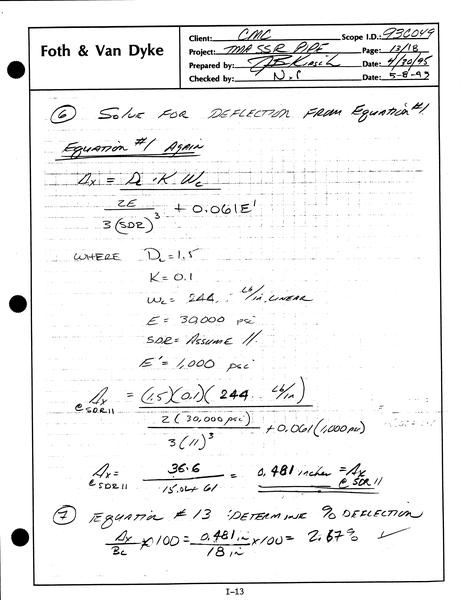 Foth & Van Dyke
Client: CMC Scope I.D.: 93C049
Project: TMA SSR PIPE Page: 13/18
Prepared by: Date: 4/30/95
Checked by: N.P Date: 5-8-95
⑥ SOLVE FOR DEFLECTION FROM EQUATION #1.
EQUATION #1 AGAIN
Δx = DL · K · Wc
2E / 3(SDR)³ + 0.061E'
WHERE DL = 1.5
K = 0.1
Wc = 244 Lb/in. LINEAR
E = 30,000 psi
SDR = ASSUME 11.
E' = 1,000 psi
Δx @ SDR11 = (1.5)(0.1)(244 Lb/in)
2(30,000 psi) / 3(11)³ + 0.061(1,000 psi)
Δx @ SDR11 = 36.6 / 15.02+61 = 0.481 inches = Δx @ SDR11
⑦ EQUATION # 13 : DETERMINE % DEFLECTION
Δx/Bc × 100 = 0.481 in/18 in × 100 = 2.67% ✓
I-13